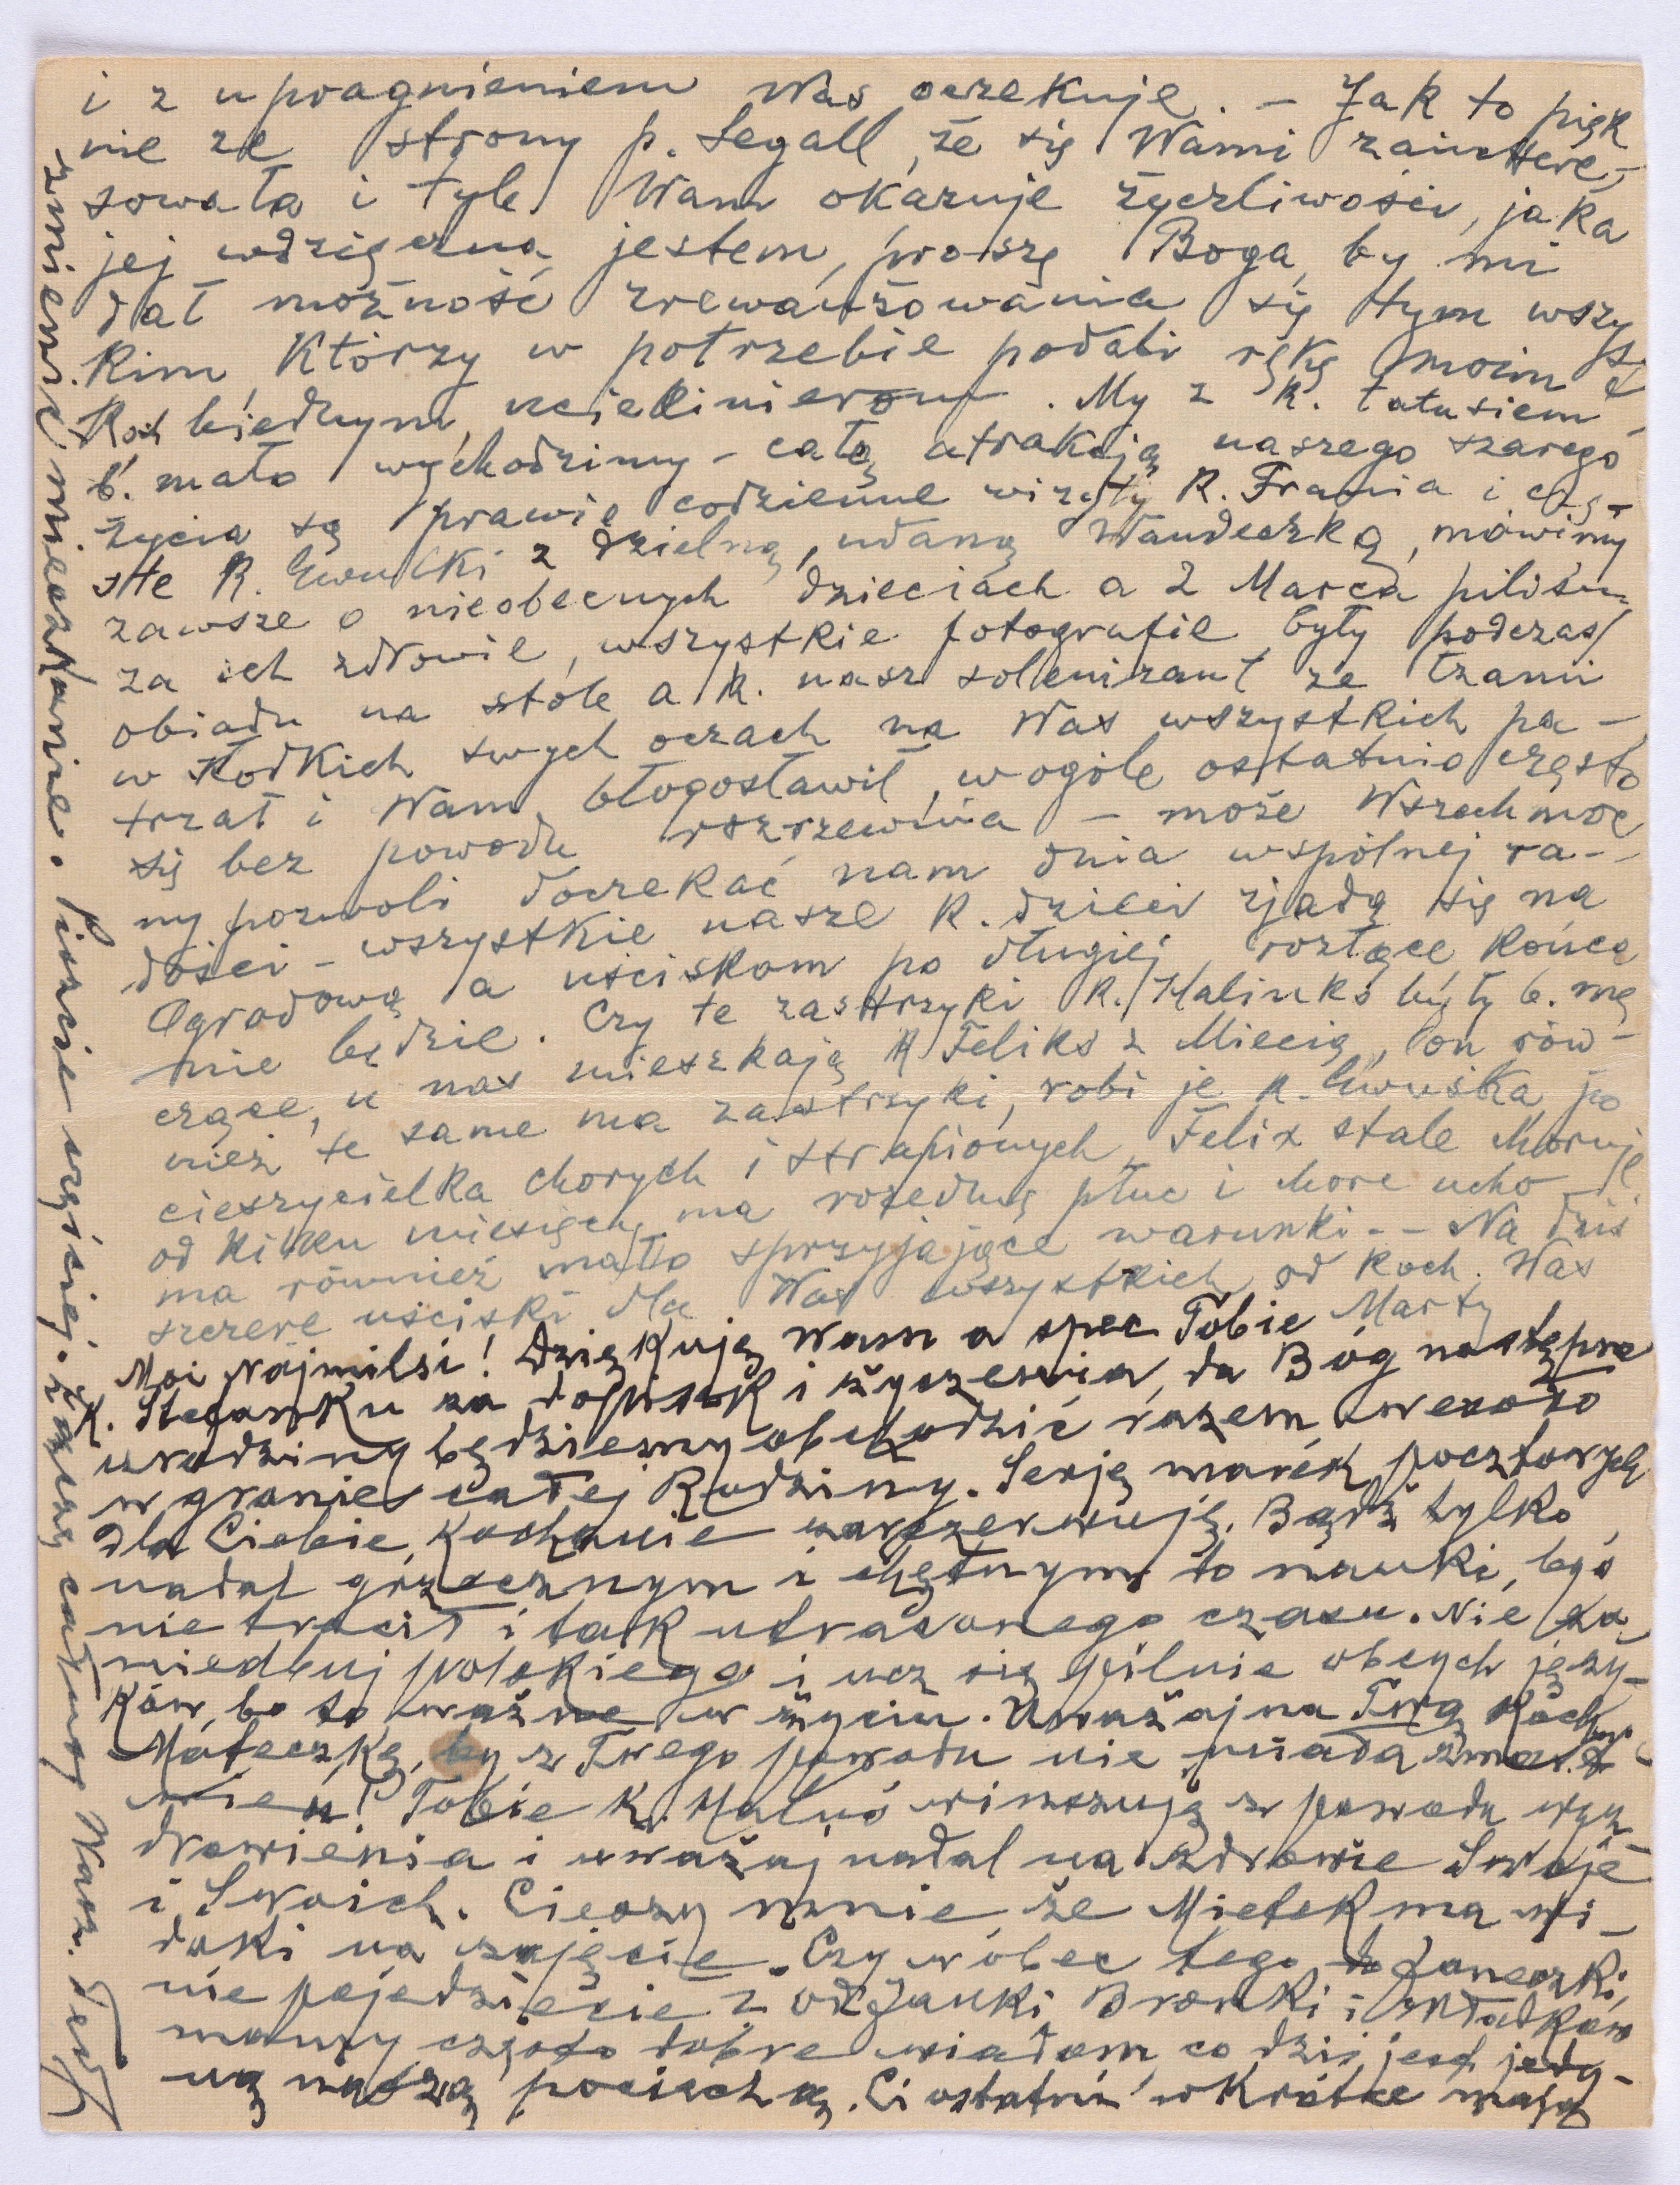 i z upragnieniem Was oczekuje. – Jak to pięk
nie ze strony p. Segall, że się Wami zaintere-
sowała i tyle Wam okazuje życzliwości, jaka
jej wdzięczna jestem, proszę Boga, by mi
dał możność zrewanżowania się tym wszyst
kim, którzy w potrzebie podali rękę moim
Koch biednym uciekinierom. My z K. Tatusiem
b. mało wychodzimy – całą atrakcją naszego szarego
życia są prawie codzienne wizyty K. Frania i czę-
ste K. Ewuśki z dzielną, udaną Wandeczką, mówimy
zawsze o nieobecnych dzieciach a 2 Marca piliśmy
za ich zdrowie, wszystkie fotografie były podczas
obiadu na stole a K. nasz solenizant ze łzami
w słodkich swych oczach na Was wszystkich pa-
trzał i Wam błogosławił, wogóle ostatnio często
się bez powodu rozrzewnia – może Wszechmoc
ny pozwoli doczekać nam dnia wspólnej ra-
dości – wszystkie nasze K. dzieci zjadą się na
Ogrodową a uściskom po długiej rozłące końca
nie będzie. Czy te zastrzyki K. Halinko były b. mę
czące, u nas mieszkają K Feliks z Miecią, on rów-
nież te same ma zastrzyki, robi je K. Ewuśka, po
cieszycielka chorych i strapionych, Felix stale choruje
od kilku miesięcy, ma rozedmę płuc i chore ucho
ma również mało sprzyjające warunki. – – Na dziś
szczere uściski dla Was wszystkich od koch. Was
Marty
Moi Najmilsi! Dziękuję Wam a spec Tobie
K. Stefanku za dopisek i życzenia, da Bóg następne
urodziny będziemy obchodzić razem, wesoło
w gronie całej Rodziny. Serję marek pocztowych
dla Ciebie, Kochanie zarezerwuję. Bądź tylko
nadal grzecznym i chętnym do nauki, byś
nie tracił i tak utraconego czasu. Nie za
niedbuj polskiego i ucz się pilnie obcych języ-
ków, bo to ważne w życiu. Uważaj na Twą Koch
Mateczkę, by z Twego powodu nie miała zmart
wień! Tobie K. Haluś winszuję z powodu wyz
drowienia i uważaj nadal na zdrowie Swoje
i Swoich. Cieszy mnie, że Mietek ma wi-
doki na zajęcie. Czy wobec tego do Janeczki
nie pojedziecie? Od Janki Bronki i Władków
mamy często dobre wiadom, co dziś jest jedy-
ną naszą pociechą. Ci ostatni wkrótce mają
zmienić mieszkanie. Piszcie częściej. Zawsze całuję Was.